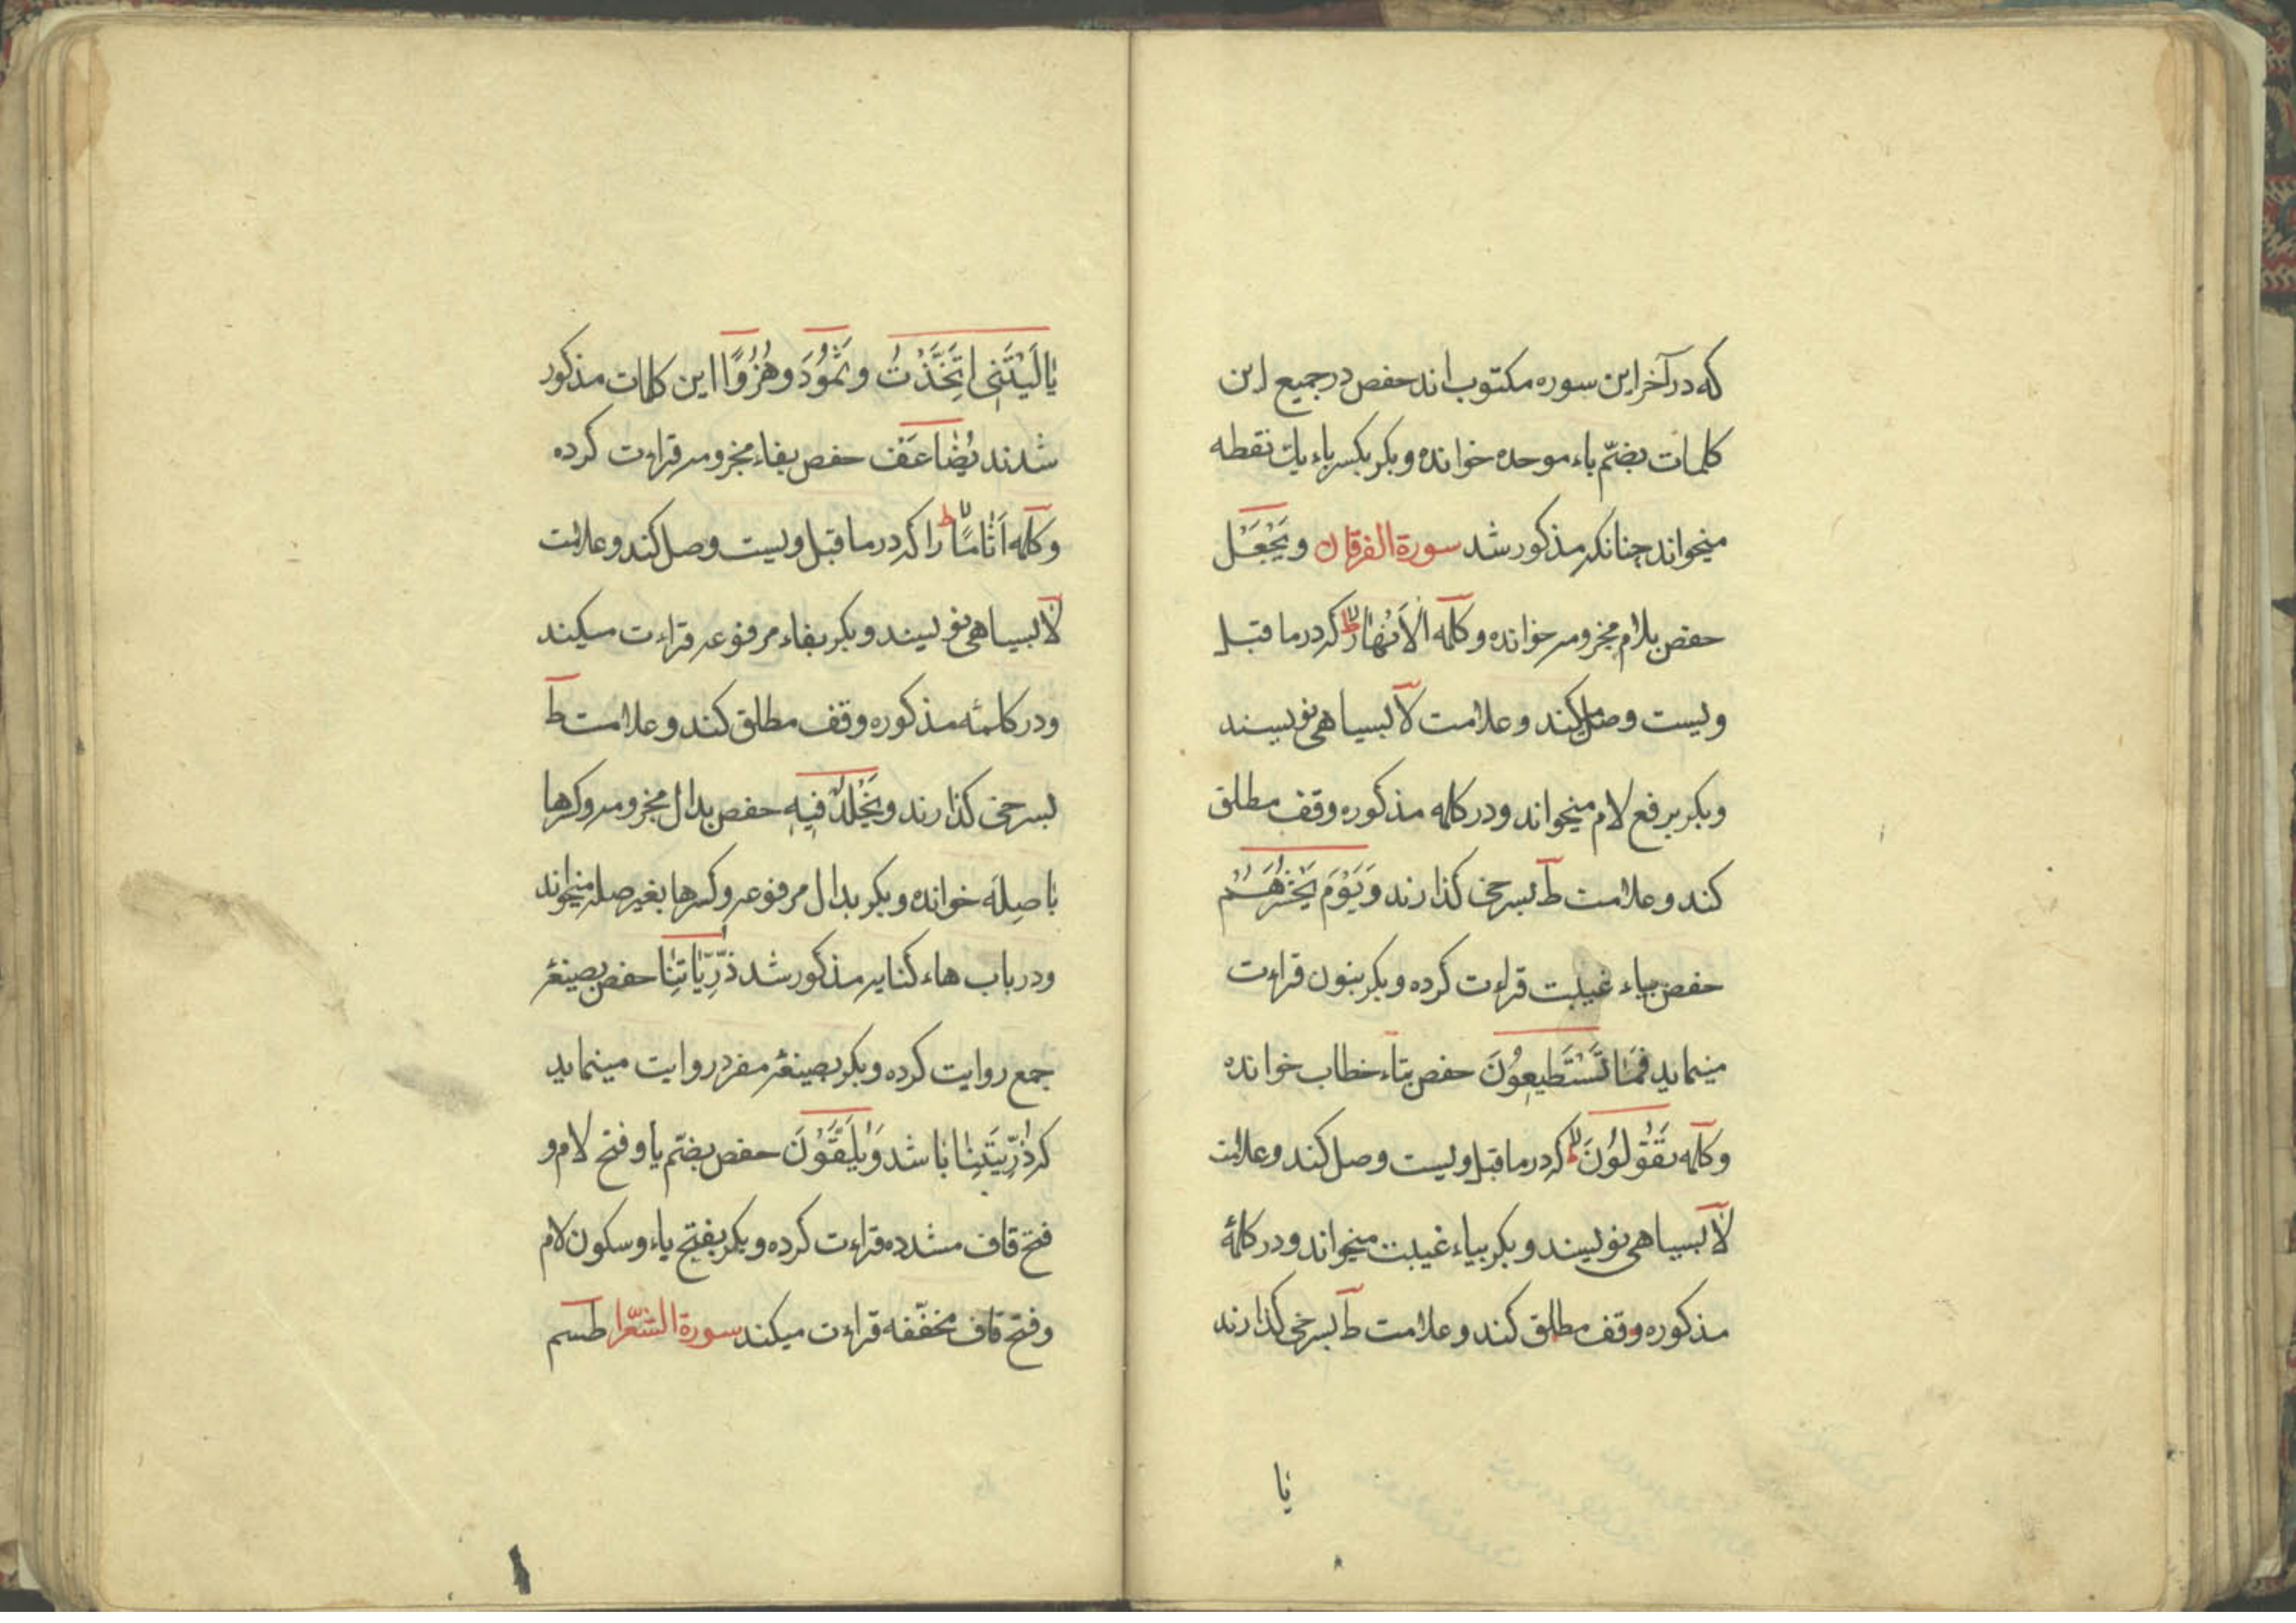 که در آخر این سوره مکتوب اند حفص در جمیع این
کلمات بضمّ باء موحده خوانده و بکر بکسر باء یك نقطه
میخواند چنانکه مذکور شد سورة الفرقان وَیَجْعَلْ
حفص بلام مجزومه خوانده و کلمه الْاَنْهٰارُ لا ط که در ما قبل
ویست وصل کند و علامت لآ بسیاهی نویسند
و بکر برفع لام میخواند و در کلمه مذکوره وقف مطلق
کند و علامت طٓ بسرخی کذارند وَیَوْمَ یَحْشُرُهُمْ
حفص بیاء غیبت قراءت کرده و بکر بنون قراءت
مینماید فَمٰا تَسْتَطیعُونَ حفص بتاء خطاب خوانده
و کلمه تَقُولُونَ لا ط که در ما قبل ویست وصل کند و علامت
لآ بسیاهی نویسند و بکر بیاء غیبت میخواند و در کلمهٔ
مذکوره وقف مطلق کند و علامت طٓ بسرخی کذارند
یٰا
یٰا لَیْتَنِی اتَّخَذْتُ و ثَمُودَ و هُزُوًا این کلمات مذکور
شدند یُضٰاعَفْ حفص بفاء مجزومه قراءت کرده
و کلمه اَثٰامًا لا ط را که در ما قبل ویست وصل کند و علامت
لآ بسیاهی نویسند و بکر بفاء مرفوعه قراءت میکند
و در کلمئه مذکوره وقف مطلق کند و علامت طٓ
بسرخی کذارند و یَخْلُدْ فِیهِ حفص بدال مجزومه و کرها
با صِلَه خوانده و بکر بدال مرفوعه و کسرها بغیر صله میخواند
و در باب هاء کنایه مذکور شد ذُرِّیّٰاتِنٰا حفص بصیغهٔ
جمع روایت کرده و بکر بصیغهٔ مفرد روایت مینماید
که ذُرِّیَتِنٰا باشد وَیُلَقَّوْنَ حفص بضمّ یا و فتح لام و
فتح قاف مشدده قراءت کرده و بکر بفتح یاء و سکون لام
و فتح قاف مخفّفه قراءت میکند سورة الشعّرا طسم